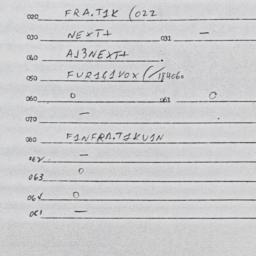 020 FRA.T1K (022
030 NEXT+ 031 —
040 A13NEXT+ .
050 FUR161VOX (/184060
060 0 061 0
070 —
080 F1NFRA.T1KU1N
—
063 0
064 0
061 —